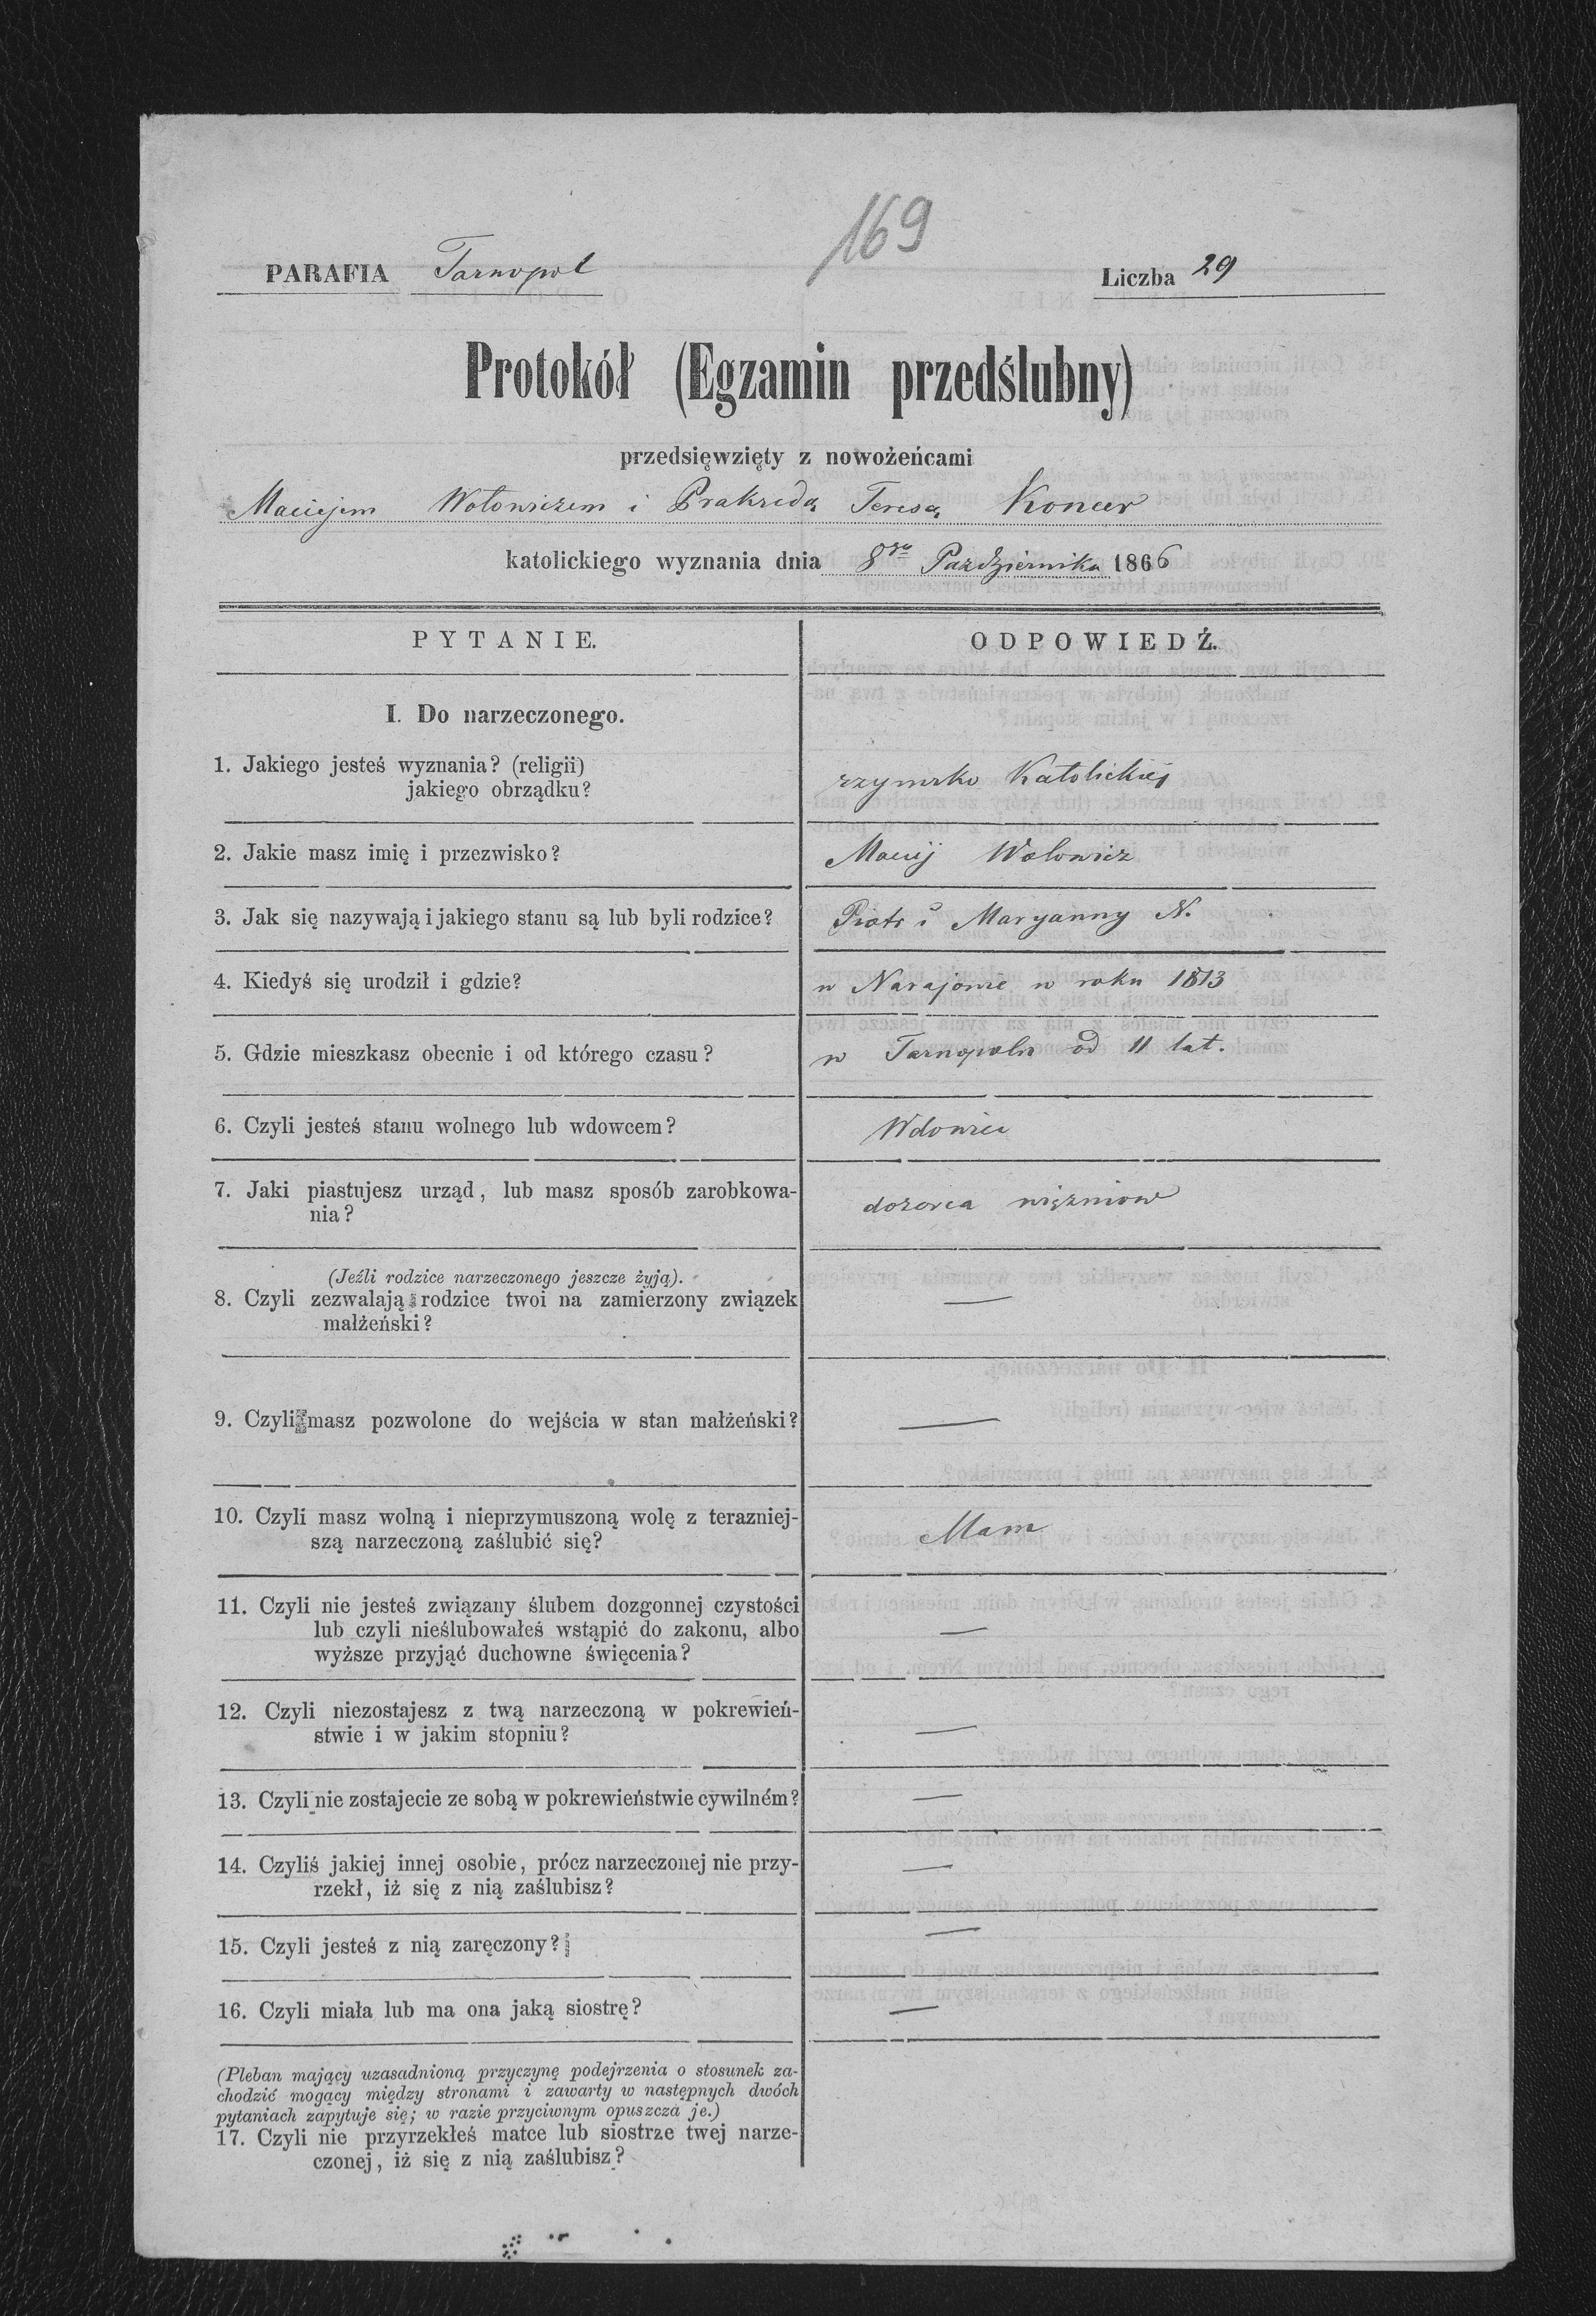 169
PARAFIA Tarnopol Liczba 29
Protokół (Egzamin przedślubny)
przedsięwzięty z nowożeńcami
Maciejem Wołowiczem i Prakseda Teresą Koncer
katolickiego wyznania dnia 8go Października 1866
PYTANIE. ODPOWIEDŹ.
I. Do narzeczonego.
1. Jakiego jesteś wyznania? (religii)
jakiego obrządku? rzymsko Katolickiej
2. Jakie masz imię i przezwisko? Maciej Wołowicz
3. Jak się nazywają i jakiego stanu są lub byli rodzice? Piotr i Maryanny N.
4. Kiedyś się urodził i gdzie? w Narajowie w roku 1813
5. Gdzie mieszkasz obecnie i od którego czasu? w Tarnopolu od 11 lat.
6. Czyli jesteś stanu wolnego lub wdowcem? Wdowiec
7. Jaki piastujesz urząd, lub masz sposób zarobkowa-
nia? dozorca więzniow
(Jeźli rodzice narzeczonego jeszcze żyją).
8. Czyli zezwalają rodzice twoi na zamierzony związek —
małżeński?
9. Czyli masz pozwolone do wejścia w stan małżeński? —
10. Czyli masz wolną i nieprzymuszoną wolę z terazniej-
szą narzeczoną zaślubić się? Mam
11. Czyli nie jesteś związany ślubem dozgonnej czystości
lub czyli nieślubowałeś wstąpić do zakonu, albo —
wyższe przyjąć duchowne święcenia?
12. Czyli niezostajesz z twą narzeczoną w pokrewień-
stwie i w jakim stopniu? —
13. Czyli nie zostajecie ze sobą w pokrewieństwie cywilném? —
14. Czyliś jakiej innej osobie, prócz narzeczonej nie przy- —
rzekł, iż się z nią zaślubisz?
15. Czyli jesteś z nią zaręczony? —
16. Czyli miała lub ma ona jaką siostrę? —
(Pleban mający uzasadnioną przyczynę podejrzenia o stosunek za-
chodzić mogący między stronami i zawarty w następnych dwóch
pytaniach zapytuje się; w razie przyciwnym opuszcza je.)
17. Czyli nie przyrzekłeś matce lub siostrze twej narze-
czonej, iż się z nią zaślubisz?